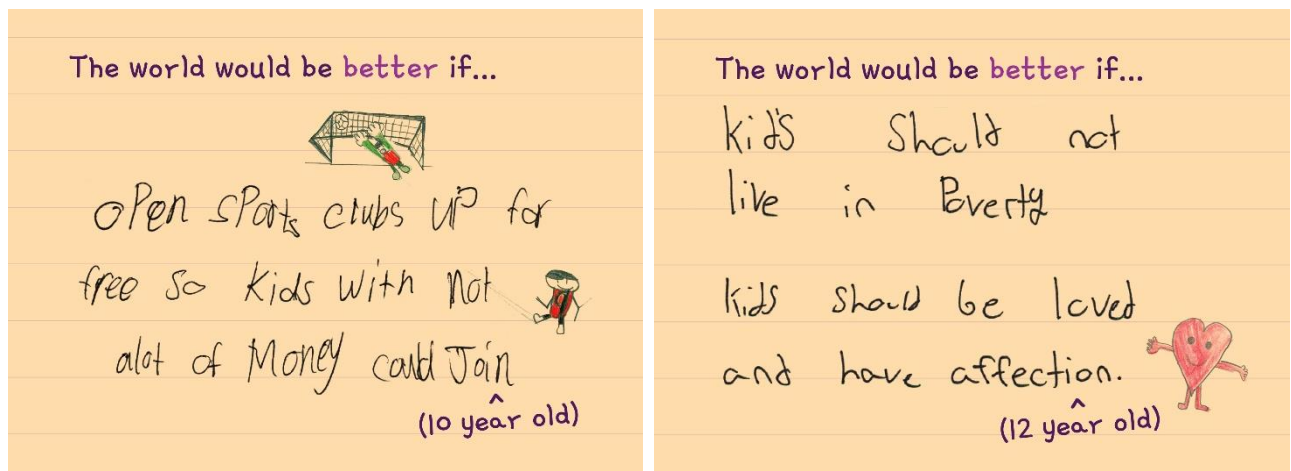 The world would be better if...
oPen sports clubs UP for
free so kids with not
alot of Money could Join
^
(10 year old)
The world would be better if...
kid's should not
live in Poverty
kids should be loved
and have affection.
^
(12 year old)